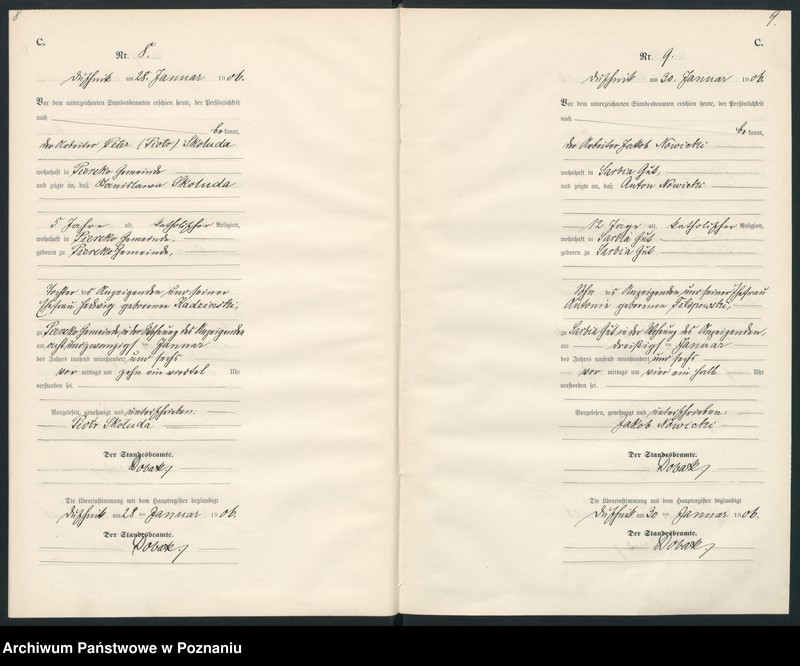 8
C.
Nr. 8.
Duschnik am 28. Januar 1906.
Vor dem unterzeichneten Standesbeamten erschien heute, der Persönlichkeit
nach
bekannt,
der Arbeiter Peter (Piotr) Skoluda
wohnhaft in Piersko Gemeinde
und zeigte an, daß Stanislawa Skoluda
5 Jahre alt, katholischer Religion,
wohnhaft in Piersko Gemeinde,
geboren zu Piersko Gemeinde,
Tochter des Anzeigenden und seiner
Ehefrau Hedwig geborenen Radzinski,
zu Piersko Gemeinde, in der Wohnung des Anzeigenden
am achtundzwanzigsten Januar
des Jahres tausend neunhundert und sechs
vor mittags um zehn ein viertel Uhr
verstorben sei.
Vorgelesen, genehmigt und unterschrieben:
Piotr Skoluda
Der Standesbeamte.
Die Übereinstimmung mit dem Hauptregister beglaubigt
Duschnik am 28ten Januar 1906.
Der Standesbeamte.
9.
C.
Nr. 9.
Duschnik am 30. Januar 1906.
Vor dem unterzeichneten Standesbeamten erschien heute, der Persönlichkeit
nach
bekannt,
der Arbeiter Jakob Nowicki
wohnhaft in Sarbia Gut,
und zeigte an, daß Anton Nowicki
12 Tage alt, katholischer Religion,
wohnhaft in Sarbia Gut
geboren zu Sarbia Gut
Sohn des Anzeigenden und seiner Ehefrau
Antonie geborenen
zu Sarbia Gut, in der Wohnung des Anzeigenden,
am dreißigsten Januar
des Jahres tausend neunhundert und sechs
vor mittags um vier ein halb Uhr
verstorben sei.
Vorgelesen, genehmigt und unterschrieben:
Jakob Nowicki
Der Standesbeamte.
Die Übereinstimmung mit dem Hauptregister beglaubigt
Duschnik am 30ten Januar 1906.
Der Standesbeamte.
Archiwum Państwowe w Poznaniu